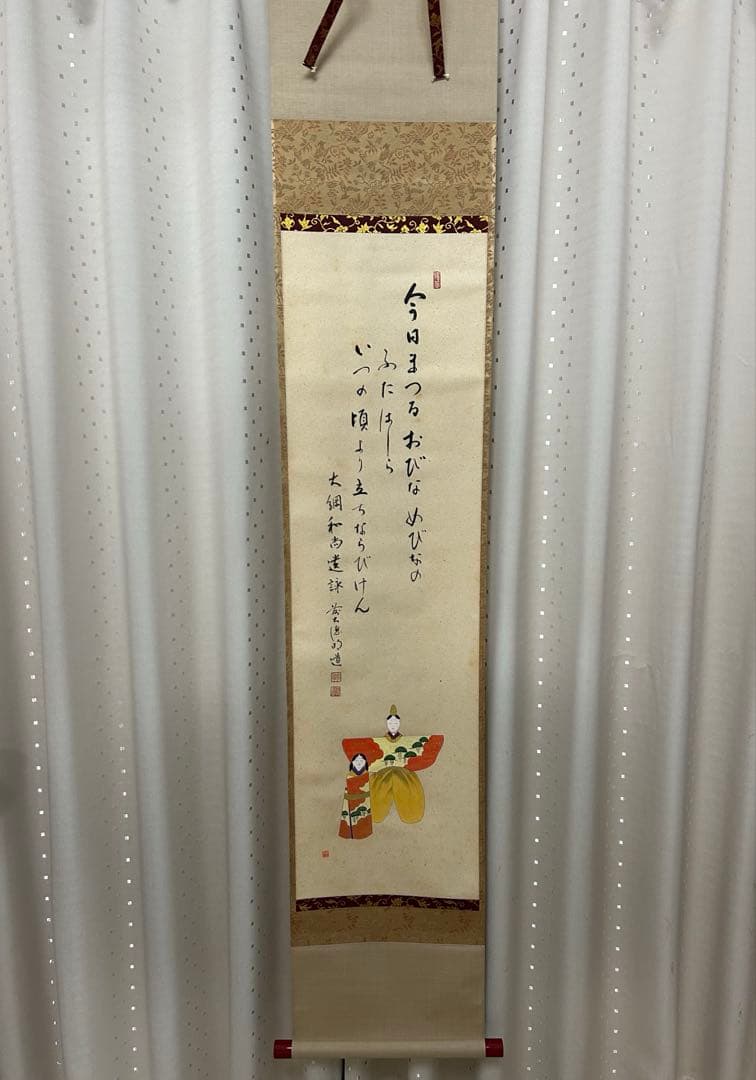 今日まつるおびなめびなの
ふたはしら
いつの頃より立ちならびけん
大綱和尚遺詠